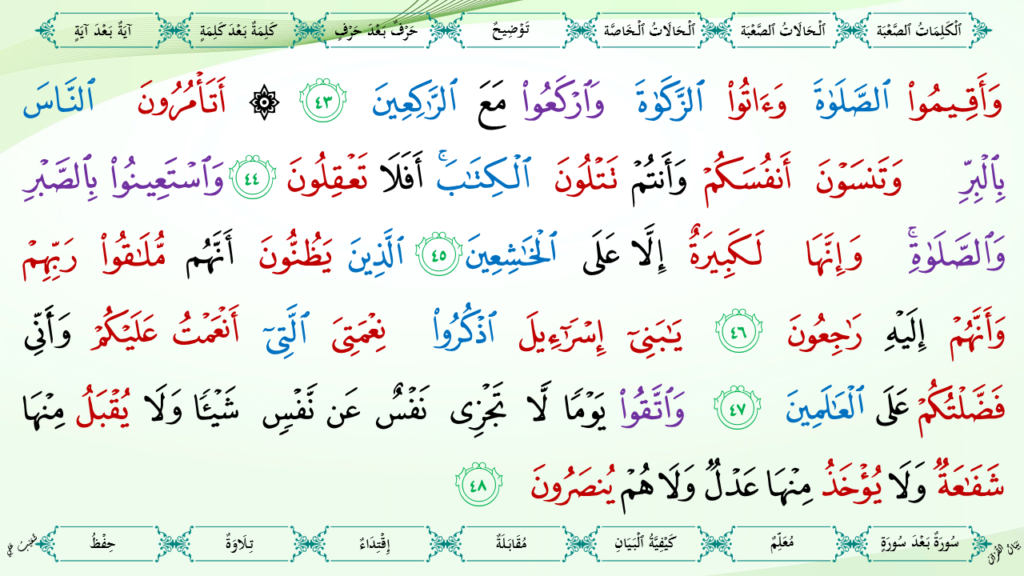 ٱلْكَلِمَاتُ ٱلصَّعْبَة ٱلْحَالَاتُ ٱلصَّعْبَة ٱلْحَالَاتُ ٱلْخَاصَّة تَوْضِيحٌ حَرْفٌ بَعْدَ حَرْفٍ كَلِمَةٌ بَعْدَ كَلِمَةٍ آيَةٌ بَعْدَ آيَةٍ
وَأَقِيمُوا۟ ٱلصَّلَوٰةَ وَءَاتُوا۟ ٱلزَّكَوٰةَ وَٱرْكَعُوا۟ مَعَ ٱلرَّٰكِعِينَ ٤٣ ۞ أَتَأْمُرُونَ ٱلنَّاسَ
بِٱلْبِرِّ وَتَنسَوْنَ أَنفُسَكُمْ وَأَنتُمْ تَتْلُونَ ٱلْكِتَٰبَ ۚ أَفَلَا تَعْقِلُونَ ٤٤ وَٱسْتَعِينُوا۟ بِٱلصَّبْرِ
وَٱلصَّلَوٰةِ ۚ وَإِنَّهَا لَكَبِيرَةٌ إِلَّا عَلَى ٱلْخَٰشِعِينَ ٤٥ ٱلَّذِينَ يَظُنُّونَ أَنَّهُم مُّلَٰقُوا۟ رَبِّهِمْ
وَأَنَّهُمْ إِلَيْهِ رَٰجِعُونَ ٤٦ يَٰبَنِىٓ إِسْرَٰٓءِيلَ ٱذْكُرُوا۟ نِعْمَتِىَ ٱلَّتِىٓ أَنْعَمْتُ عَلَيْكُمْ وَأَنِّى
فَضَّلْتُكُمْ عَلَى ٱلْعَٰلَمِينَ ٤٧ وَٱتَّقُوا۟ يَوْمًا لَّا تَجْزِى نَفْسٌ عَن نَّفْسٍ شَيْـًٔا وَلَا يُقْبَلُ مِنْهَا
شَفَٰعَةٌ وَلَا يُؤْخَذُ مِنْهَا عَدْلٌ وَلَا هُمْ يُنصَرُونَ ٤٨
سُورَةٌ بَعْدَ سُورَةٍ مُعَلِّمٌ كَيْفِيَّةُ ٱلْبَيَانِ مُقَابَلَةٌ إِقْتِدَاءٌ تِلَاوَةٌ حِفْظُ
بَيَانُ ٱلْقُرْآن